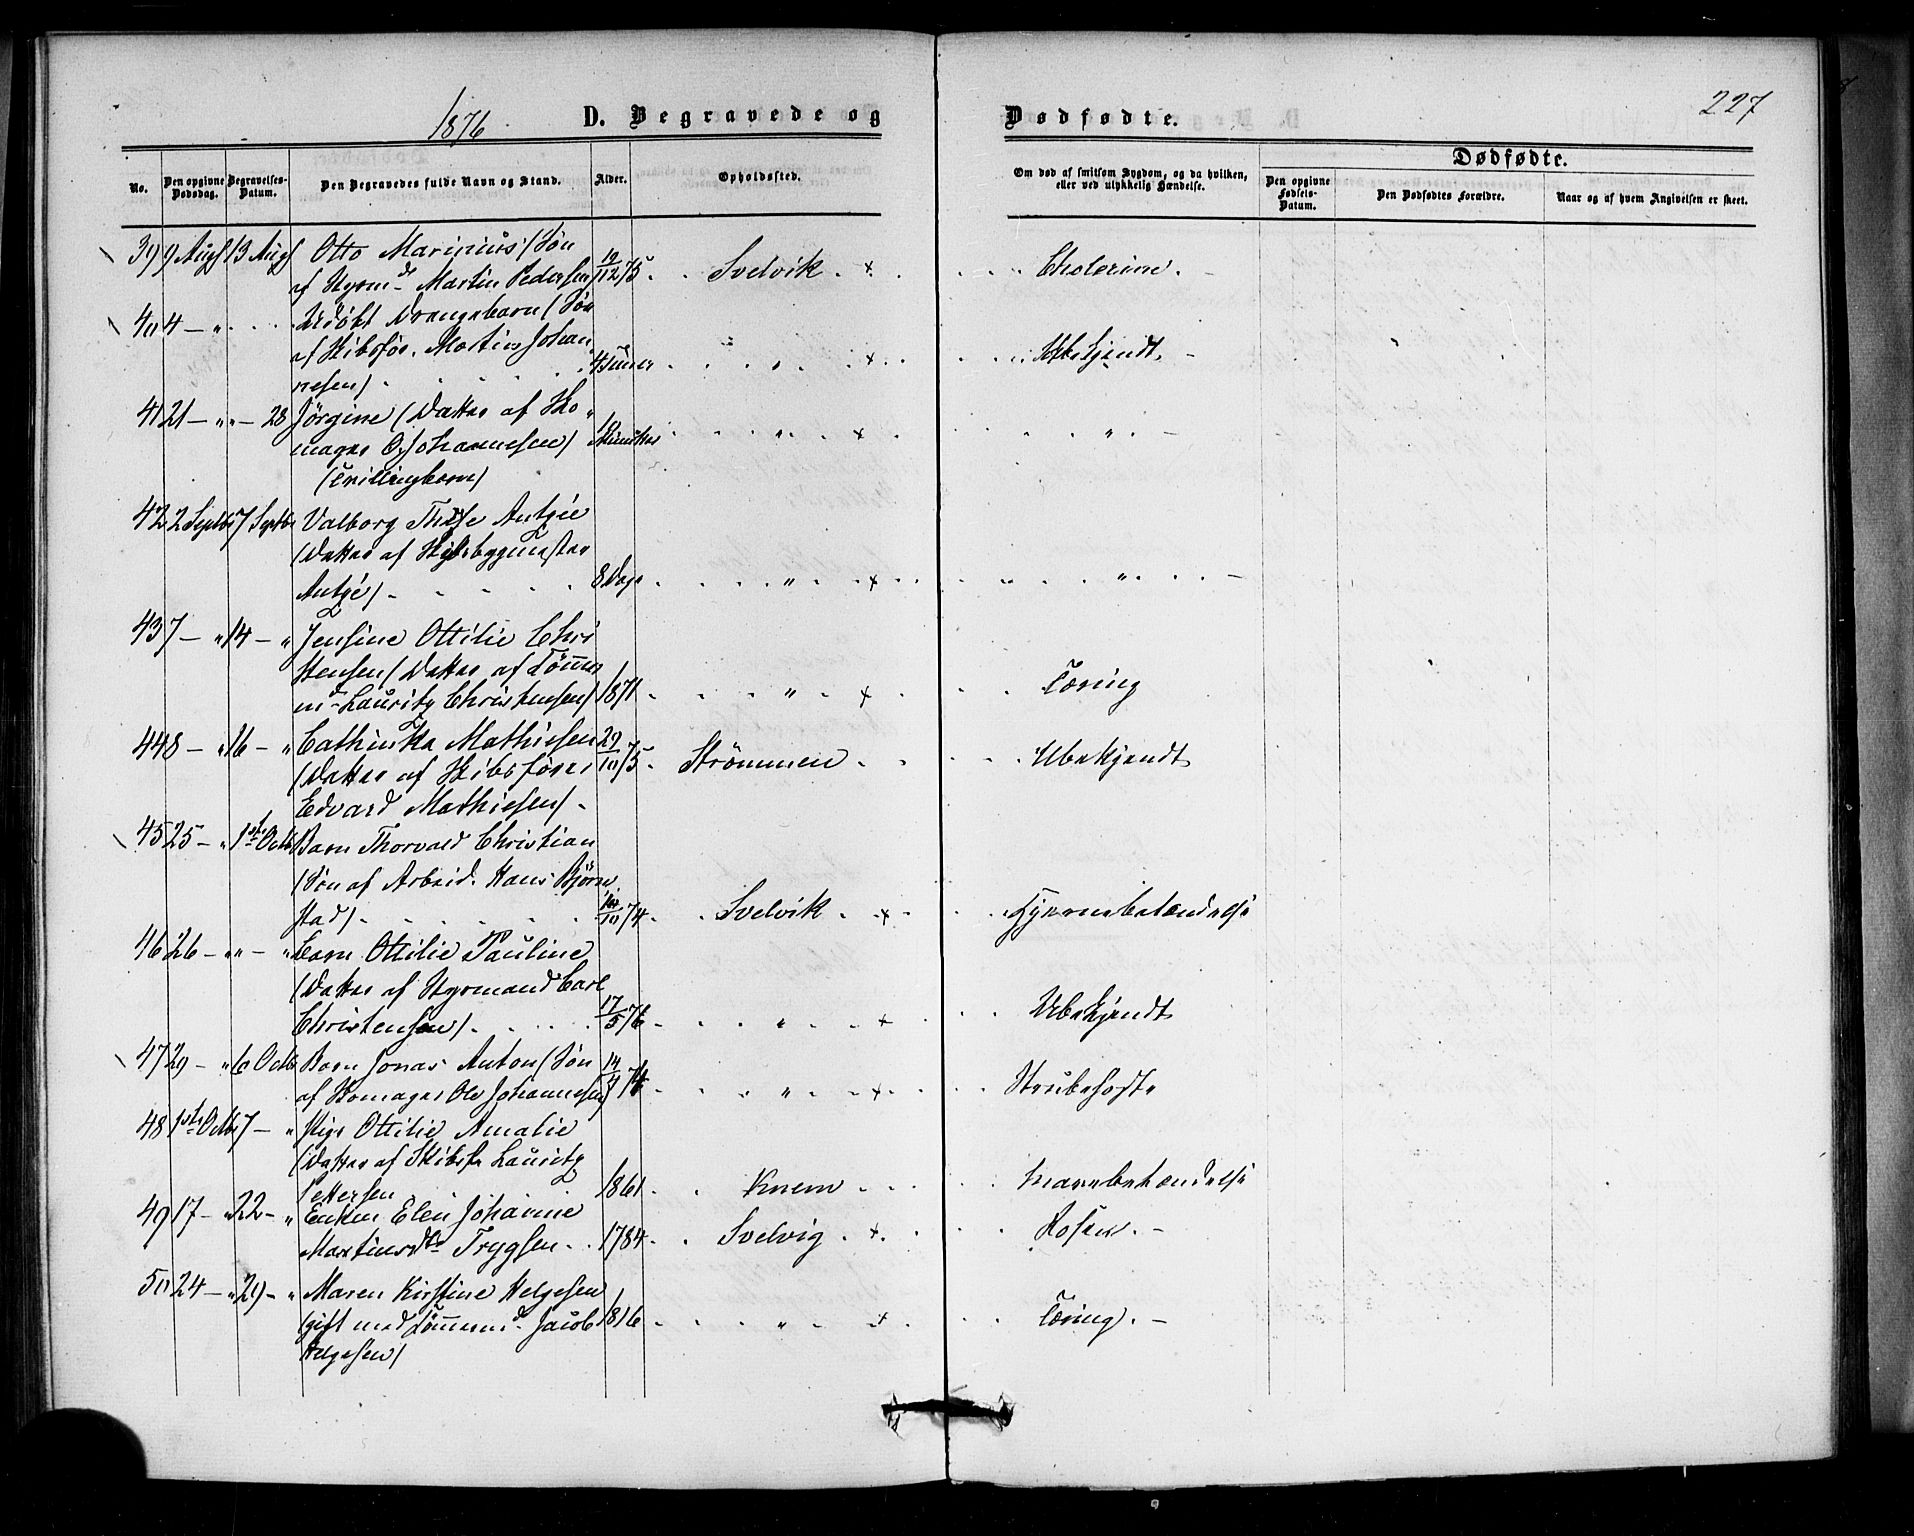 1876
D. Begravede og
Dødfødte.
227
No.
Den opgivne Dødsdag.
Begravelses-Datum.
Den Begravedes fulde Navn og Stand.
Alder.
Opholdssted.
Om død af smitsom Sygdom, og da hvilken,
eller ved ulykkelig Hændelse.
Dødfødte.
Den opgivne Fødsels-Datum.
Den Dødfødtes Forældre.
Naar og af hvem Angivelsen er skeet.
39 9 Aug 13 Aug Otto Marinius (Søn
af Styrmd Martin Pedersen) 75 Svelvik + Cholerine. –
40 4 – " Udøbt Drengebarn (Søn
af Skibsfør. Martin Johan
nesen) 4 Timer " + Ubekjendt. –
41 21 – " " – 28 Jörgine (Datter af Sko
mager O. Johannesen) " + " –
(Trillingbarn)
42 2 Septb 7 Septb Valborg Antzée
(Datter af Skibsbygmester
Antzée) 8 Dage " + " –
43 7 – " 14 – " Jensine Ottilie Chri
stensen (Datter af Tömmer
md Lauritz Christensen) 1871 " + Tæring
44 8 – " 16 – " Cathinka Mathisen 29/10 75
(Datter af Skibsfører Strömmen Ubekjendt
Edvard Mathiesen)
45 25 – " 1ste Octb Barn Thorvald Christian
(Søn af Arbeid. Hans Björne
stad) 74 Svelvik + Hjernebetændelse
46 26 – " " – " Barn Ottilie Pauline
(Datter af Styrmand Carl
Christensen) 17/5 76 " + Ubekjendt
47 29 – " 6 Octb Barn Jonas Anton (Søn
af Skomager Ole Johannesen) 14/4 " + Strubehoste
48 1ste Octb 7 – " Pige Ottilie Amalie
(Datter af Skibsf. Lauritz
Pettersen 1861 Knem Mavebetændelse
49 17 – " 22 – " Enken Elen Johanne
Martinsdtr Trygsen 1784 Svelvig + Rosen. –
50 24 – " 29 – " Maren Kirstine Helgesen
(gift med Tömmermd Jacob 1816 " + Tæring. –
Helgesen)